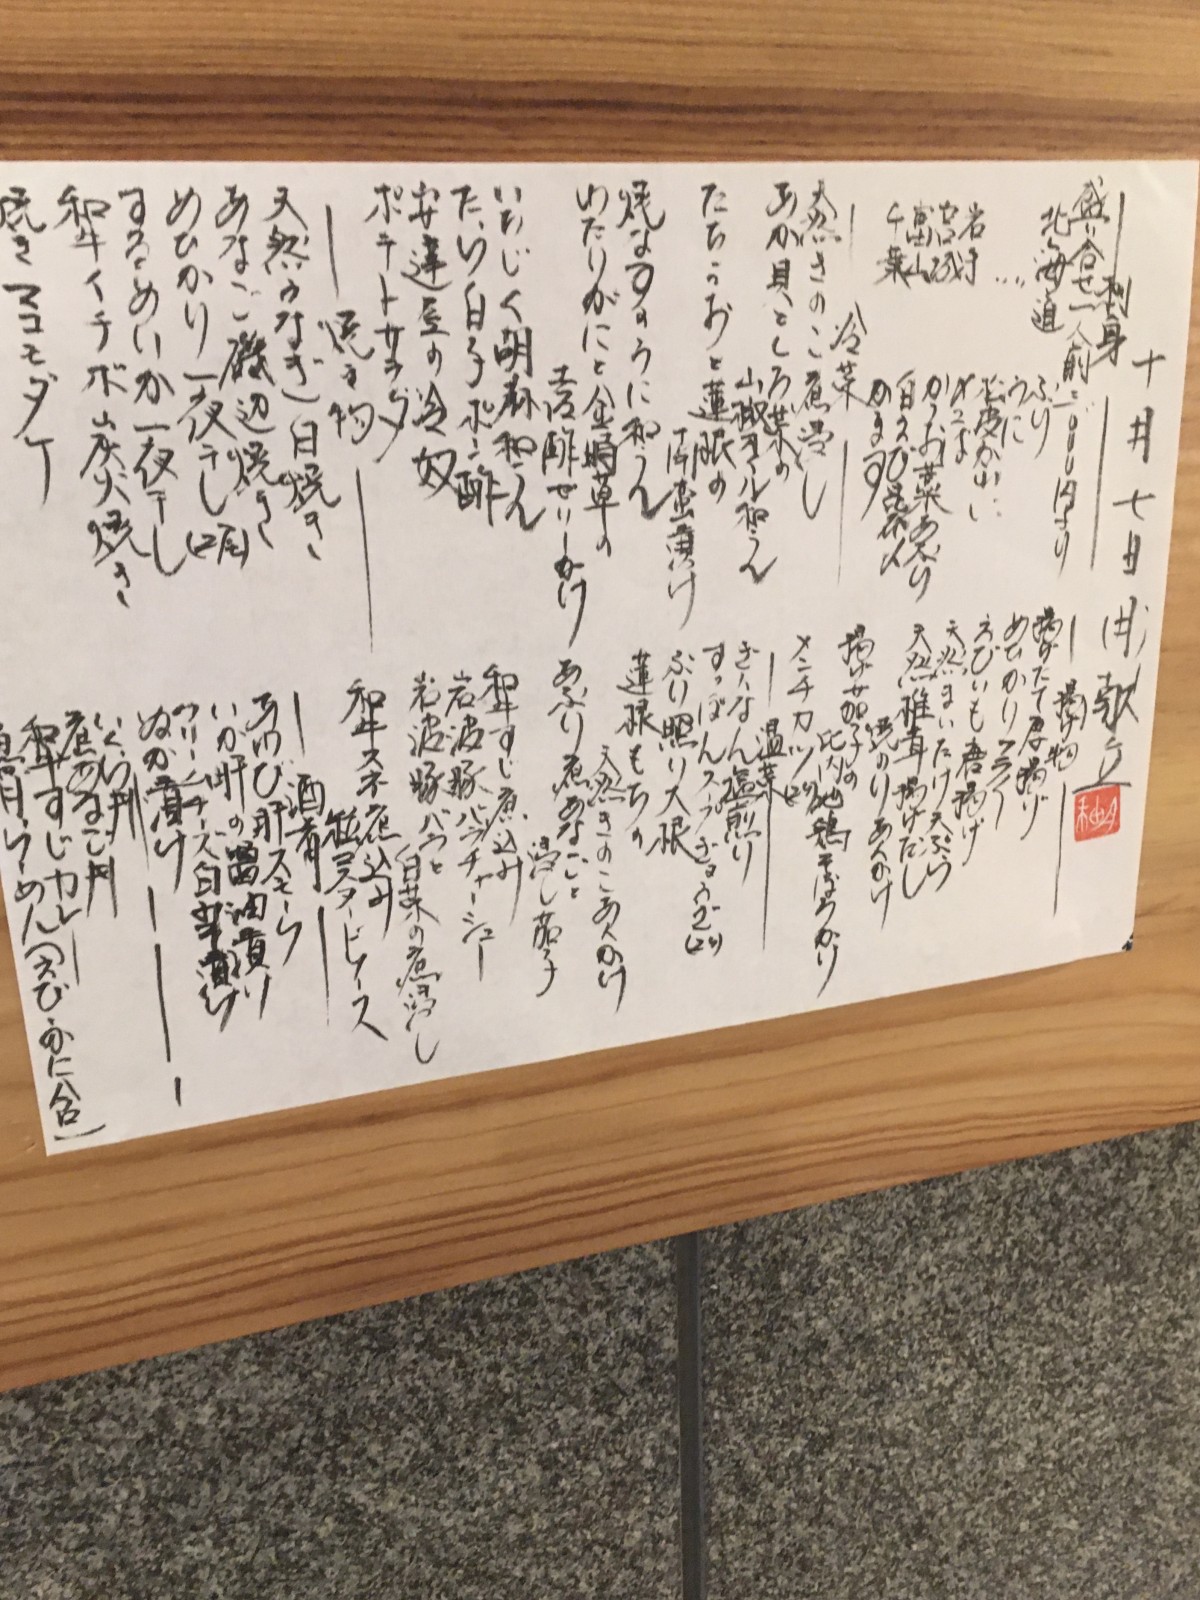 十月七日 献立
刺身
盛り合せ一人前
北海道
ぶり
うに
岩手
宮城
富山
千葉
かつお藁あぶり
かます
冷菜
天然きのこ煮浸し
あか貝としろ菜の
山椒オイル和え
たちうおと蓮根の
南蛮漬け
焼なすのうに和え
わたりがにと金時草の
土佐酢ぜりーかけ
いちじく胡麻和え
たい白子ポン酢
安達屋の冷奴
ポテトサラダ
焼き物
天然うなぎ白焼き
あなご磯辺焼き
めひかり一夜干し(2尾)
するめいか一夜干し
和牛イチボ炭火焼き
焼きマコモダケ
揚げ物
揚げたて厚揚げ
めひかりフライ
えびいも唐揚げ
天然まいたけ天ぷら
天然椎茸揚げだし
焼のりあんかけ
揚げ茄子の
比内地鶏そぼろかけ
メンチカツ
温菜
ぎんなん塩煎り
すっぽんスープぎょうざ(2ケ)
ぶり照り大根
蓮根もちの
天然きのこあんかけ
あぶり煮あなごと
浸し茄子
和牛すじ煮込み
岩波豚バラチャーシュー
岩波豚バラと
白菜の煮浸し
和牛スネ煮込み
粒マスタードソース
酒肴
あわび肝スモーク
いか肝の醤油漬け
クリームチーズ白味噌漬け
ぬか漬け
いくら丼
煮あなご丼
和牛すじカレー
魚介らーめん(えび・かに含)